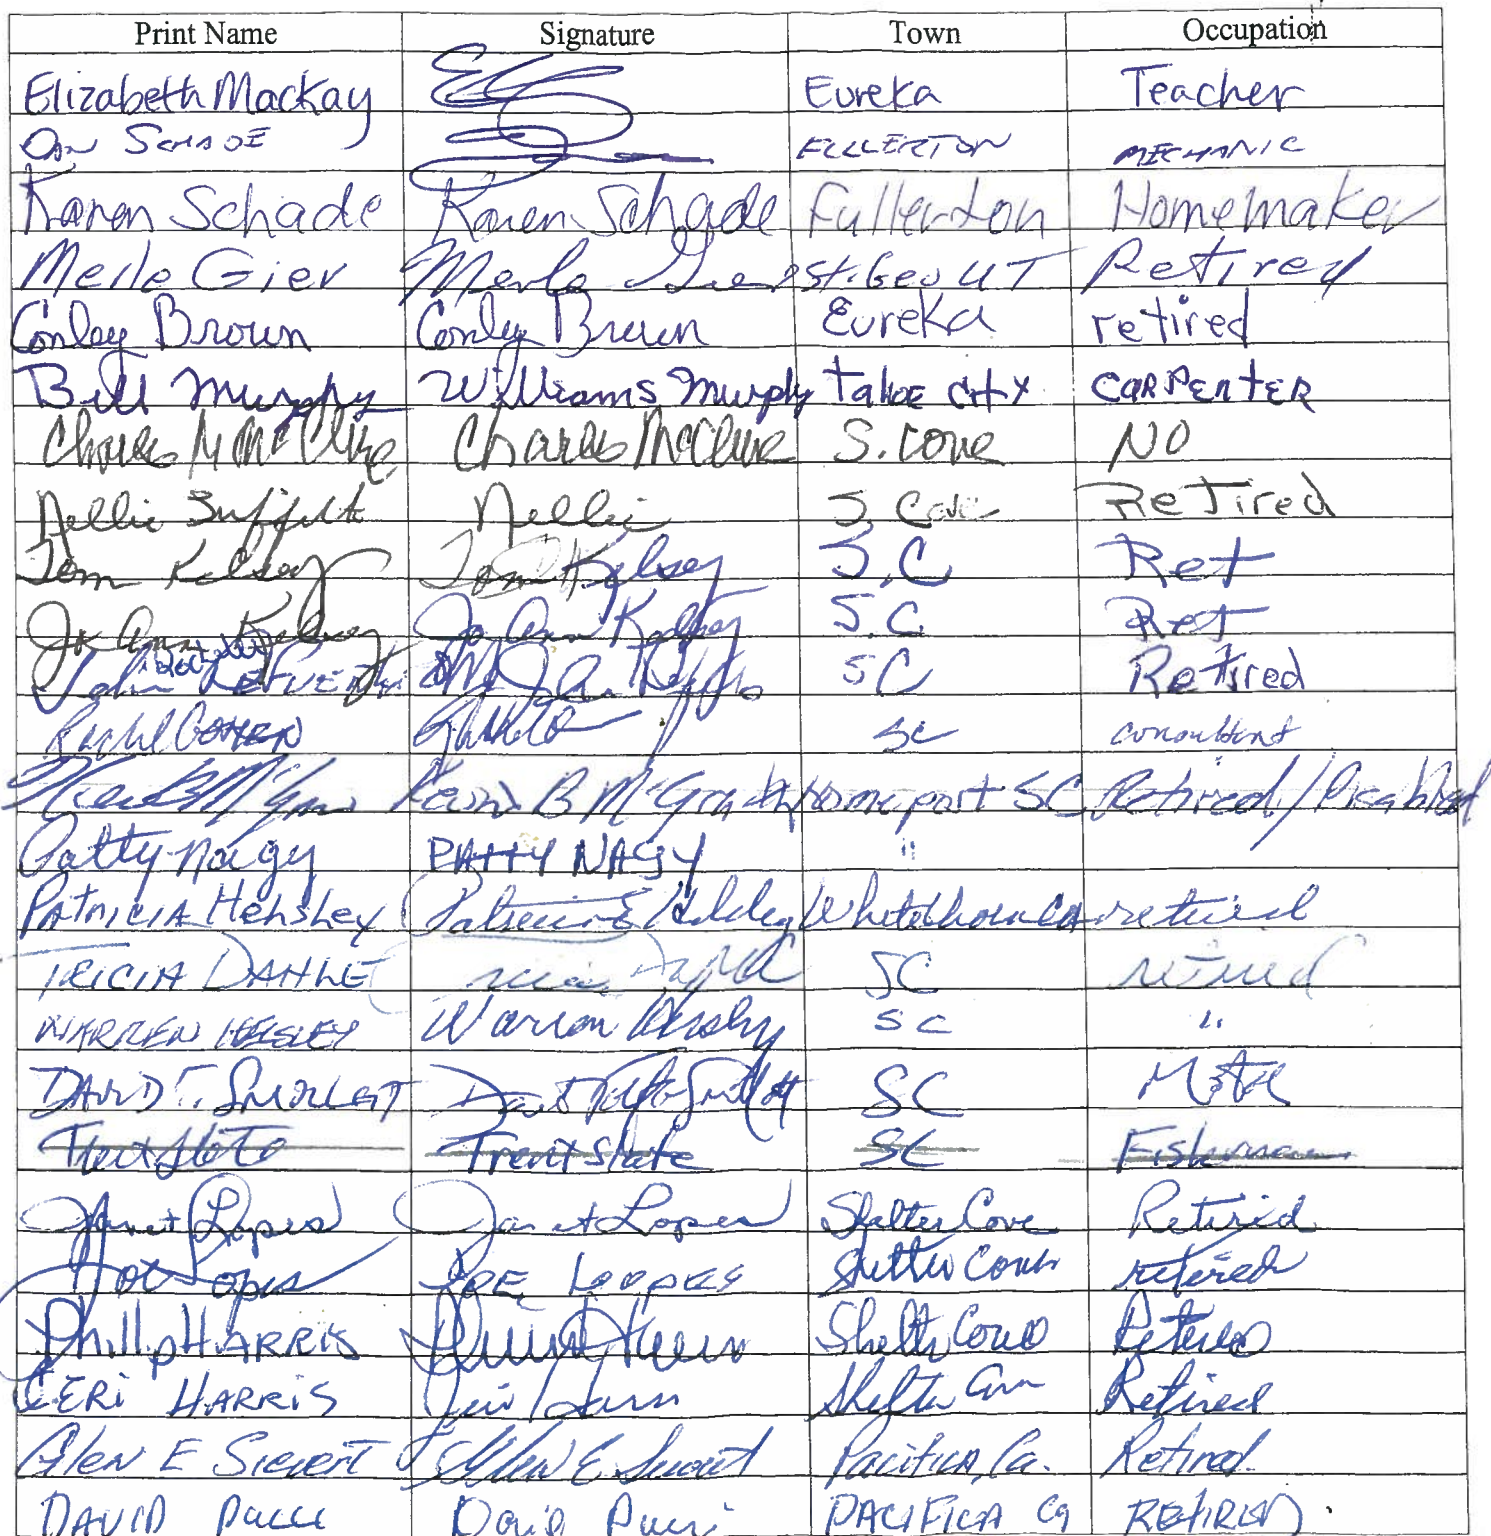 Print Name Signature Town Occupation
Elizabeth Mackay Eureka Teacher
Dan SCHADE FULLERTON MECHANIC
Karen Schade Karen Schade Fullerton Homemaker
Merle Gier Merle Gier St. Geo UT Retired
Conley Brown Conley Brown Eureka retired
Bill Murphy Williams Murphy Tahoe City CARPENTER
Charles M McClure Charles McClure S. Cove NO
Nellie Nellie S. Cove Retired
Tom Kelsey Tom Kelsey S.C Ret
Jo Ann Kelsey Jo Ann Kelsey S.C. Ret
John SC Retired
Rachel COHEN SC consultant
Kevin B McGrath Homeport SC Retired/Disabled
Patty Nagy PATTY NAGY "
PATRICIA Hensley Patricia E Whitethorn Ca retired
TRICIA DAHLE SC retired
WARREN HENSLEY Warren Hensley SC "
DAVID T. David SC
Trent Slate SC Fisherman
Janet Lopes Janet Lopes Shelter Cove Retired
Joe Lopes JOE LOOPES Shelter Cove retired
Phillip HARRIS Shelter Cove Retired
GERI HARRIS Geri Harris Shelter Cove Retired
Glen E Sievert Glen E Sievert Pacifica, Ca. Retired
DAVID PUCCI David Pucci PACIFICA Ca RETIRED.